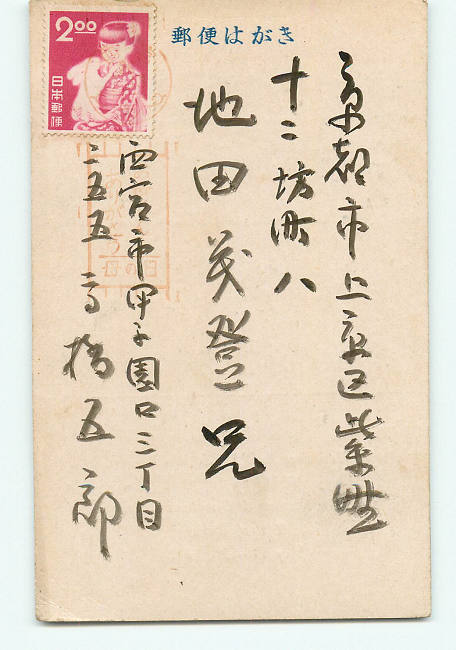 郵便はがき
2.00
日本郵便
京都市上京区紫野
十二坊町八
地田茂登兄
西宮市甲子園口三丁目
二五五高橋五郎
母の日